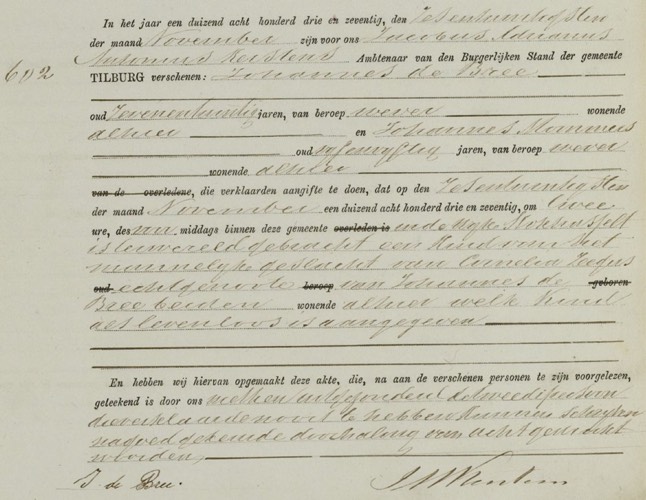 In het jaar een duizend acht honderd drie en zeventig, den Zesentwintigsten
der maand November zijn voor ons Jacobus Adrianus
Antonius Kerstens Ambtenaar van den Burgerlijken Stand der gemeente
602
TILBURG verschenen: Johannes de Bree
oud Zevenentwintig jaren, van beroep wever wonende
alhier en Johannes Mommers
oud vyfenvyftig jaren, van beroep wever
wonende alhier
van de overledene, die verklaarden aangifte te doen, dat op den Zesentwintigsten
der maand November een duizend acht honderd drie en zeventig, om twee
ure, des na middags binnen deze gemeente overleden is in de wyk
is ter wereld gebracht een kind van het
mannelyk geslacht van Cornelia
oud echtgenoote beroep van Johannes de geboren
Bree beiden wonende alhier welk kind
als levenloos is aangegeven
En hebben wij hiervan opgemaakt deze akte, die, na aan de verschenen personen te zijn voorgelezen,
geteekend is door ons met den uitgezonderd de tweede die
verklaarde nooit te hebben kunnen schryven
nagoedgekeurde doorhaling van acht gedrukte
woorden
J de Bree.